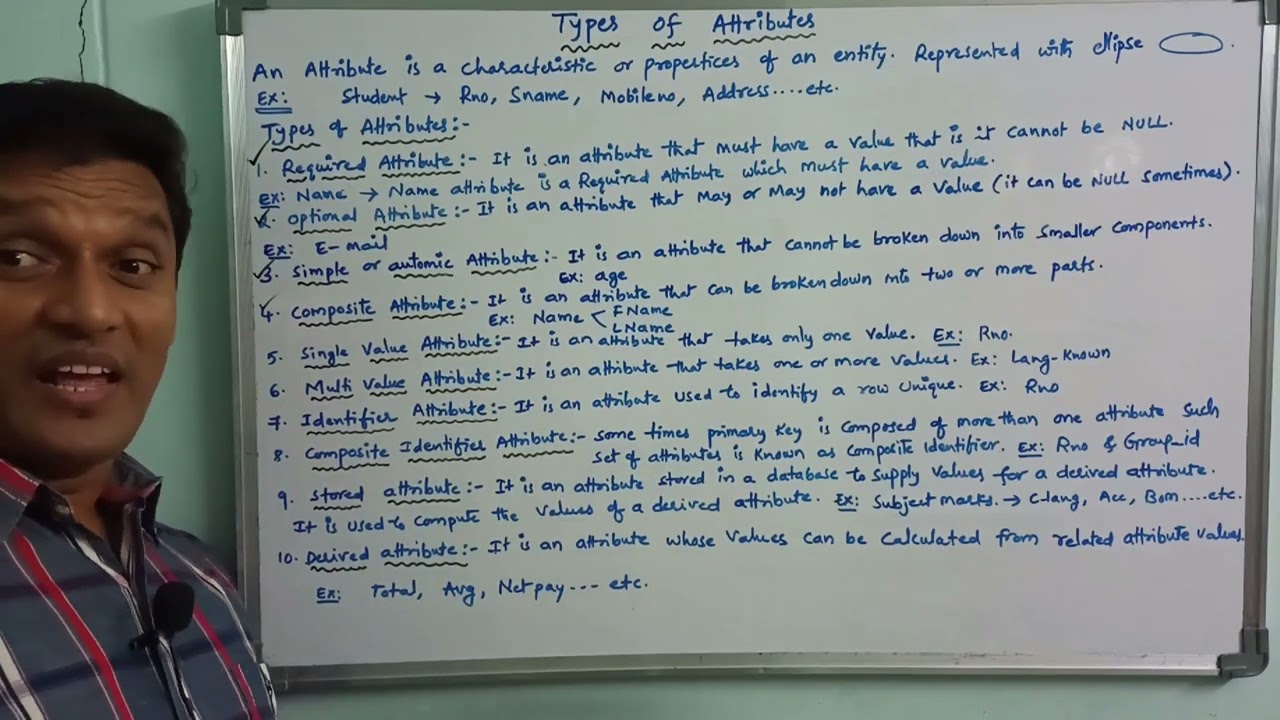 Types of Attributes
An Attribute is a characteristic or propertices of an entity. Represented with ellipse
Ex: Student → Rno, Sname, Mobileno, Address....etc.
Types of Attributes:-
1. Required Attribute:- It is an attribute that must have a value that is it cannot be NULL.
Ex: Name → Name attribute is a Required Attribute which must have a value.
2. optional Attribute:- It is an attribute that May or May not have a value (it can be NULL sometimes).
Ex: E-mail
3. Simple or automic Attribute:- It is an attribute that cannot be broken down into smaller components.
Ex: age
4. Composite Attribute:- It is an attribute that can be broken down into two or more parts.
Ex: Name < FName
LName
5. Single Value Attribute:- It is an attribute that takes only one value. Ex: Rno.
6. Multi Value Attribute:- It is an attribute that takes one or more values. Ex: Lang-Known
7. Identifier Attribute:- It is an attribute used to identify a row unique. Ex: Rno
8. Composite Identifier Attribute:- some times primary key is composed of more than one attribute such
set of attributes is known as composite identifier. Ex: Rno & Group_id
9. stored attribute:- It is an attribute stored in a database to supply values for a derived attribute.
It is used to compute the values of a derived attribute. Ex: Subject marks. → C-lang, Acc, Bom....etc.
10. Derived attribute:- It is an attribute whose values can be calculated from related attribute values.
Ex: Total, Avg, Netpay---- etc.